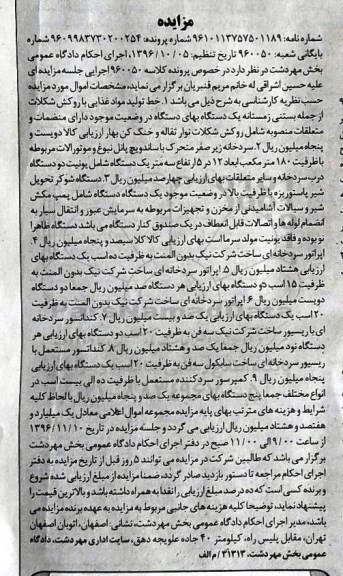 مزایده
شماره نامه: ۹۶۱۰۱۱۳۷۵۷۵۰۱۱۸۹ شماره پرونده: ۹۶۰۹۹۸۳۷۳۰۲۰۰۲۵۴ شماره
بایگانی شعبه: ۹۶۰۰۵۰ تاریخ تنظیم: ۱۳۹۶/۱۰/۰۵، اجرای احکام دادگاه عمومی
بخش مهردشت در نظر دارد در خصوص پرونده کلاسه ۹۶۰۰۵۰ اجرایی جلسه مزایده ای
علیه حسین اشراقی له خانم مریم قنبریان برگزار می نماید، مشخصات اموال مورد مزایده
حسب نظریه کارشناسی به شرح ذیل می باشد ۱. خط تولید مواد غذایی با روکش شکلات
از جمله بستنی زمستانه یک دستگاه بهای دستگاه در وضعیت موجود دارای منضمات و
متعلقات منصوبه شامل روکش شکلات نوار نقاله و خنک کن بهار ارزیابی کالا دویست و
پنجاه میلیون ریال ۲. سردخانه زیر صفر متحرک با ساندویچ پانل تیوغ و موتورالات مربوطه
با ظرفیت ۱۸۰ متر مکعب ابعاد ۱۲ در ۵ ارتفاع سه متر یک دستگاه شامل یونیت دو دستگاه
درب سردخانه و سایر متعلقات بهای ارزیابی چهارصد میلیون ریال ۳. دستگاه شوکر تحویل
شیر پاستوریزه با ظرفیت بالا در وضعیت موجود یک دستگاه دستگاه شامل پمپ مکش
شیر و سیالات آشامیدنی از مخزن و تجهیزات مربوطه به سرمایش عبور و انتقال سیار به
انضمام لوله ها و اتصالات قابل انعطاف در یک صندوق کنار دستگاه می باشد دستگاه ظاهرا
نو بوده و فاقد یونیت مولد سرما است بهای ارزیابی کالا کلا سیصد و پنجاه میلیون ریال ۴.
اپراتور سردخانه ای ساخت شرکت نیک بدون المنت به ظرفیت ده اسب یک دستگاه بهای
ارزیابی هشتاد میلیون ریال ۵. اپراتور سردخانه ای ساخت شرکت نیک بدون المنت به
ظرفیت ۱۵ اسب دو دستگاه بهای ارزیابی هر دستگاه صد میلیون ریال جمعا دو دستگاه
دویست میلیون ریال ۶. اپراتور سردخانه ای ساخت شرکت نیک بدون المنت به ظرفیت
۲۰ اسب یک دستگاه بهای ارزیابی یک صد و بیست میلیون ریال ۷. کندانسور سردخانه
ای با ریسیور ساخت شرکت نیک سه فن به ظرفیت ۲۰ اسب دو دستگاه بهای ارزیابی هر
دستگاه نود میلیون ریال جمعا یک صد و هشتاد میلیون ریال ۸. کندانسور مستعمل با
ریسیور سردخانه ای ساخت سابکول سه فن به ظرفیت ۲۰ اسب یک دستگاه بهای ارزیابی
پنجاه میلیون ریال ۹. کمپرسور سرد کننده مستعمل با ظرفیت ده الی بیست اسب در
انواع مختلف جمعا پنج دستگاه بهای مجموعه یک صد و پنجاه میلیون ریال با لحاظ کلیه
شرایط و هزینه های مترتب بهای پایه مزایده مجموعه اموال اعلامی معادل یک میلیارد و
هفتصد و هشتاد میلیون ریال ارزیابی می گردد و جلسه مزایده در تاریخ ۱۳۹۶/۱۱/۱۰
از ساعت ۹/۰۰ الی ۱۱/۰۰ صبح در دفتر اجرای احکام دادگاه عمومی بخش مهردشت
برگزار می باشد که طالبین شرکت در مزایده می توانند ۵ روز قبل از تاریخ مزایده به دفتر
اجرای احکام مراجعه تا دستور بازدید صادر گردد، ضمنا مزایده از مبلغ ارزیابی شده شروع
و برنده کسی است که ده درصد مبلغ ارزیابی را نقدا به همراه داشته باشد و بالاترین قیمت را
پیشنهاد نماید، توضیحا کلیه هزینه های جانبی مربوط به مزایده به عهده برنده مزایده می
باشد، مدیر اجرای احکام دادگاه عمومی بخش مهردشت، نشانی: اصفهان، اتوبان اصفهان
تهران، مقابل پلیس راه، کیلومتر ۴۰ جاده علویجه دهق، سایت اداری مهردشت، دادگاه
عمومی بخش مهردشت، ۳۱۳۱۳/ م الف